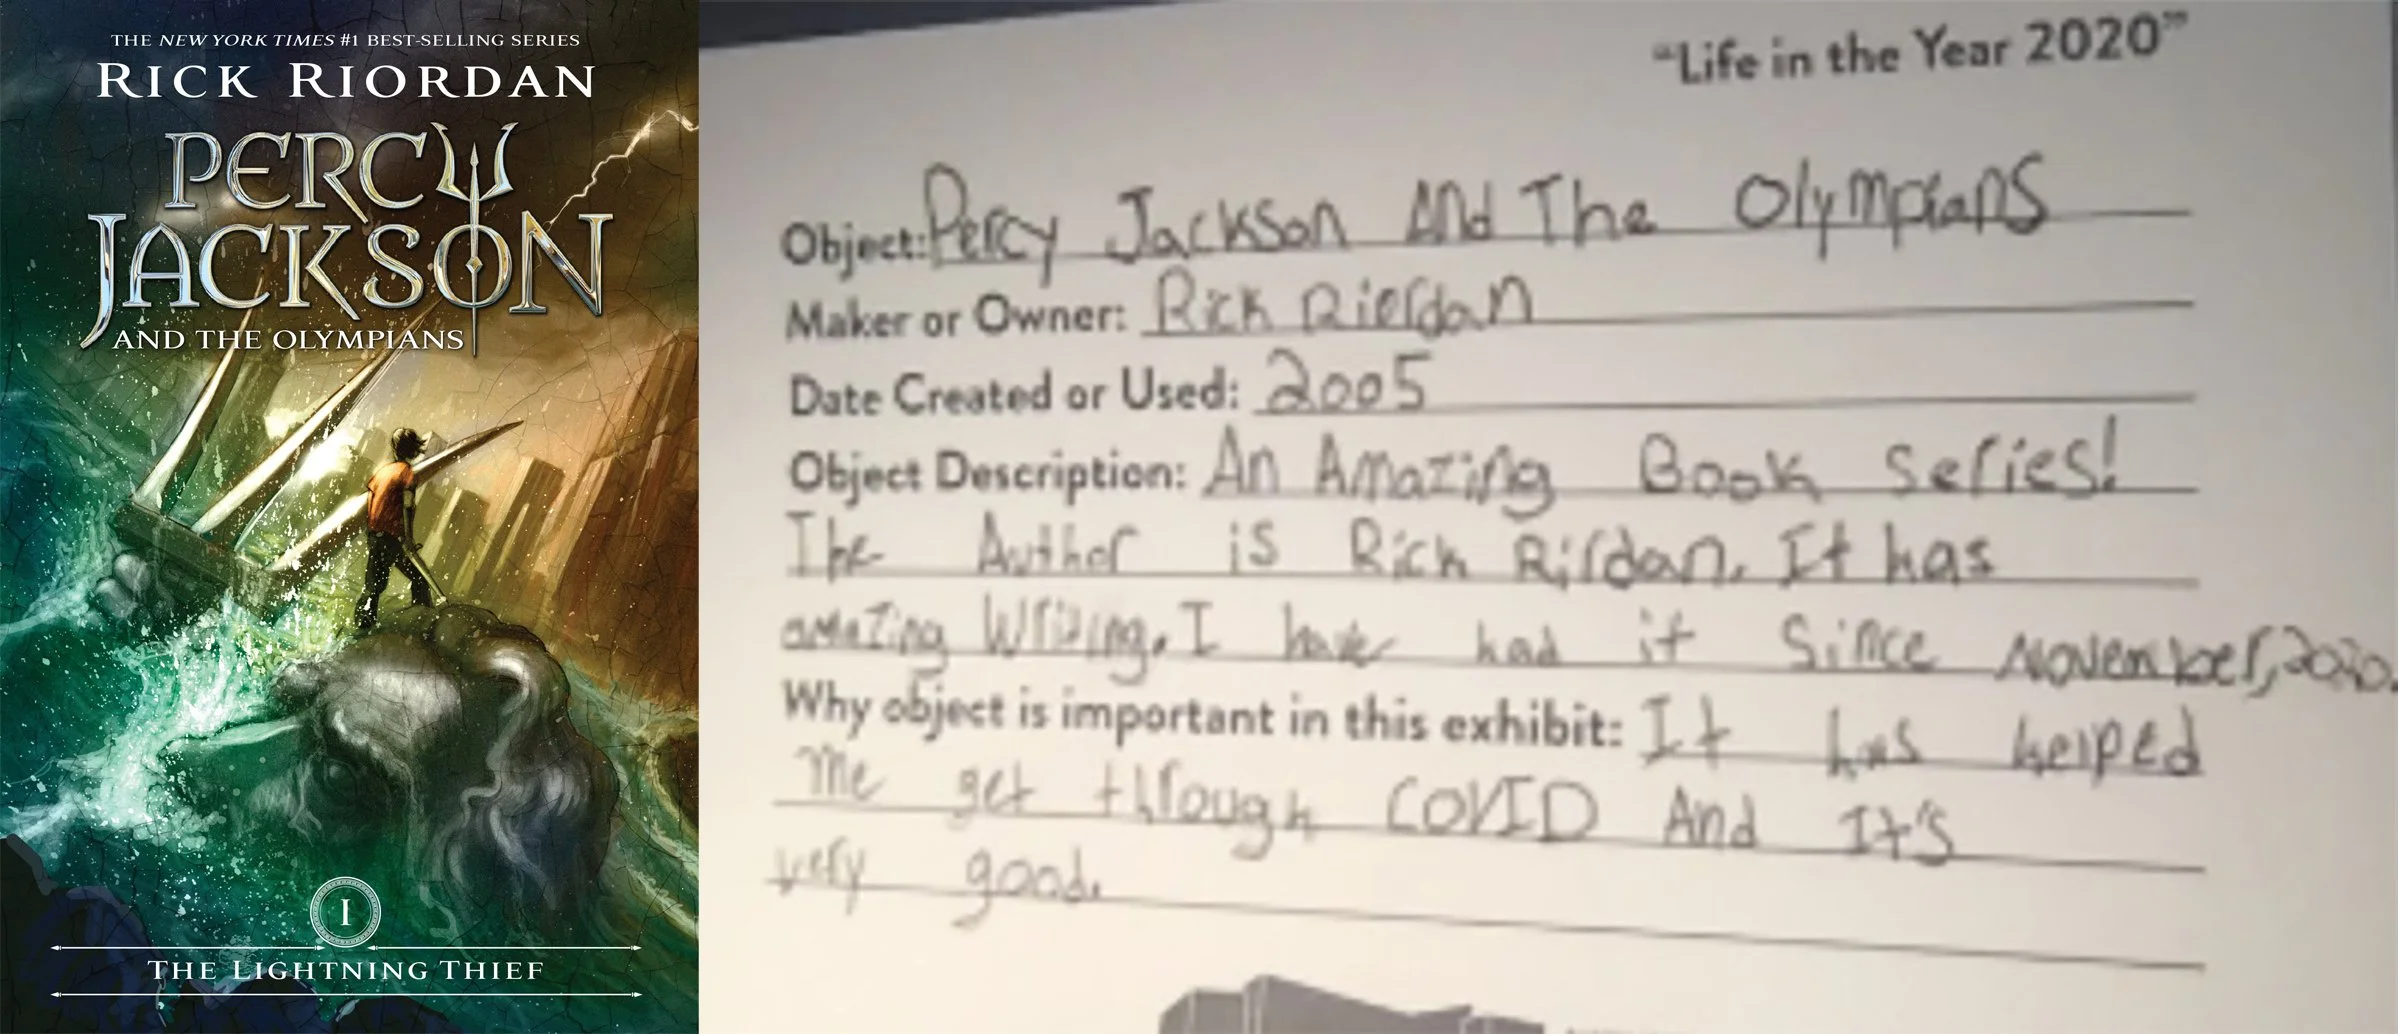 THE NEW YORK TIMES #1 BEST-SELLING SERIES
RICK RIORDAN
PERCY
JACKSON
AND THE OLYMPIANS
I
THE LIGHTNING THIEF
"Life in the Year 2020"
Object: Percy Jackson And The Olympians
Maker or Owner: Rick Rierdan
Date Created or Used: 2005
Object Description: An Amazing Book series!
The Author is Rick Rirdan. It has
amazing Writing. I have had it Since November, 2020.
Why object is important in this exhibit: It has helped
me get through COVID And It's
very good.